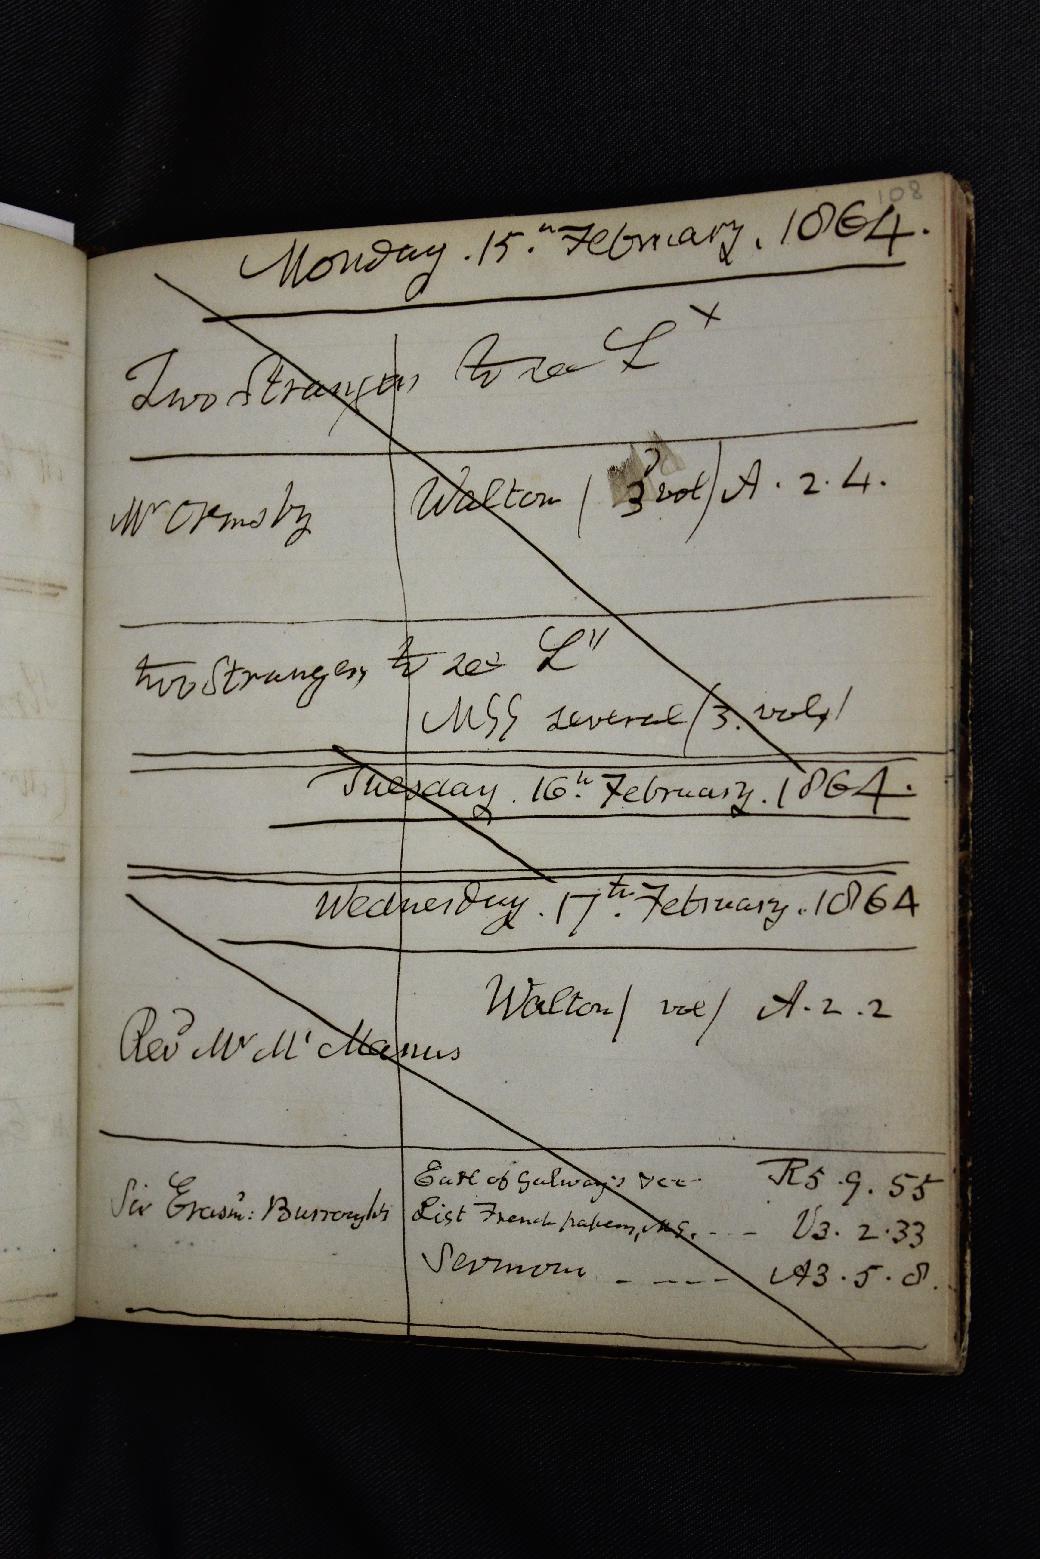 108
Monday . 15.th February . 1864.
Two Strangers to see L x
Mr Ormsby Walton ( 3 vol) A . 2 . 4.
two Strangers to see L"
MSS several (3. vols)
Tuesday . 16th. February . 1864.
Wednesday . 17th. February . 1864
Walton / vol / A . 2 . 2
Revd Mr Mc Manus
Earl of Galway's R5 . 9 . 55
Sir Erasm: Burroughs List French papers, MS. - - - V3 . 2 . 33
Sermon - - - - A3 . 5 . 8.